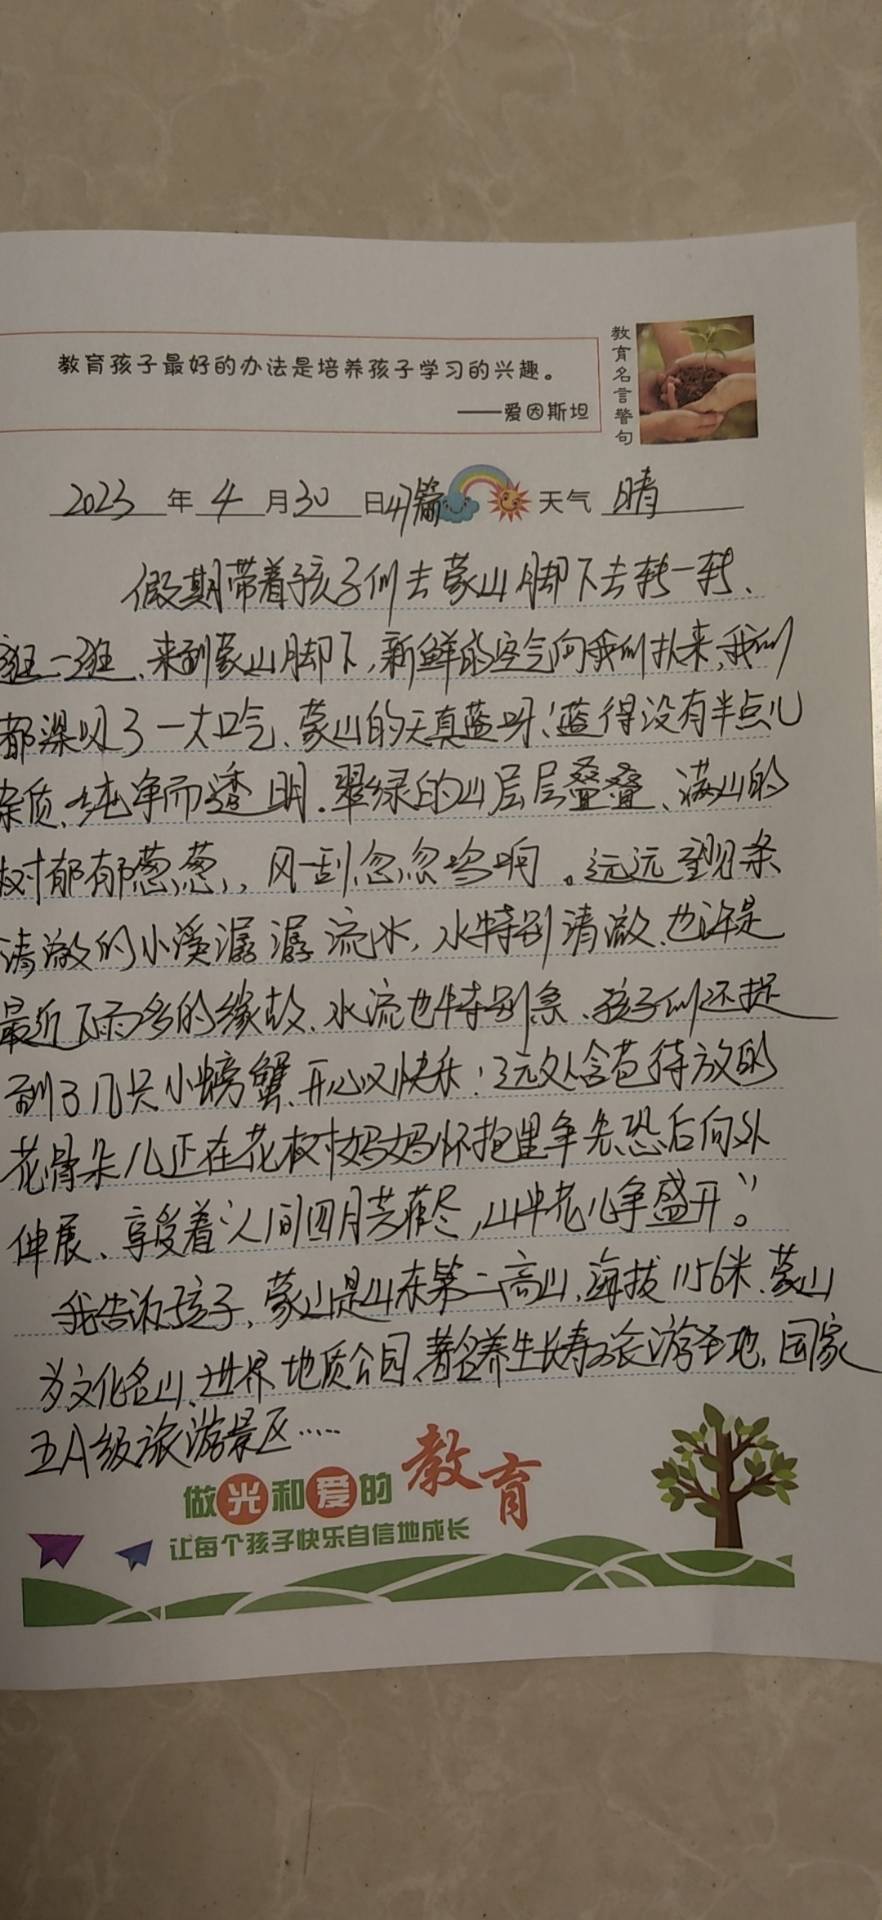 教育孩子最好的办法是培养孩子学习的兴趣。
——爱因斯坦
教育名言警句
2023年4月30日47篇 天气 晴
假期带着孩子们去蒙山脚下去转一转、
逛一逛、来到蒙山脚下,新鲜的空气向我们扑来,我们
都深吸了一大口气、蒙山的天真蓝呀!蓝得没有半点儿
杂质、纯净而透明.翠绿的山层层叠叠、满山的
树郁郁葱葱,,风一刮忽忽的响。远远望见条
清澈的小溪潺潺流水,水特别清澈、也许是
最近下雨多的缘故、水流也特别急、孩子们还捉
到了几只小螃蟹、开心又快乐!远处含苞待放的
花骨朵儿正在花树妈妈怀抱里争先恐后向外
伸展、享受着“人间四月芳菲尽,山中花儿争盛开”。
我告诉孩子,蒙山是山东第二高山,海拔1156米、蒙山
为文化名山、世界地质公园、著名养生长寿旅游圣地,国家
五A级旅游景区……
做光和爱的教育
让每个孩子快乐自信地成长